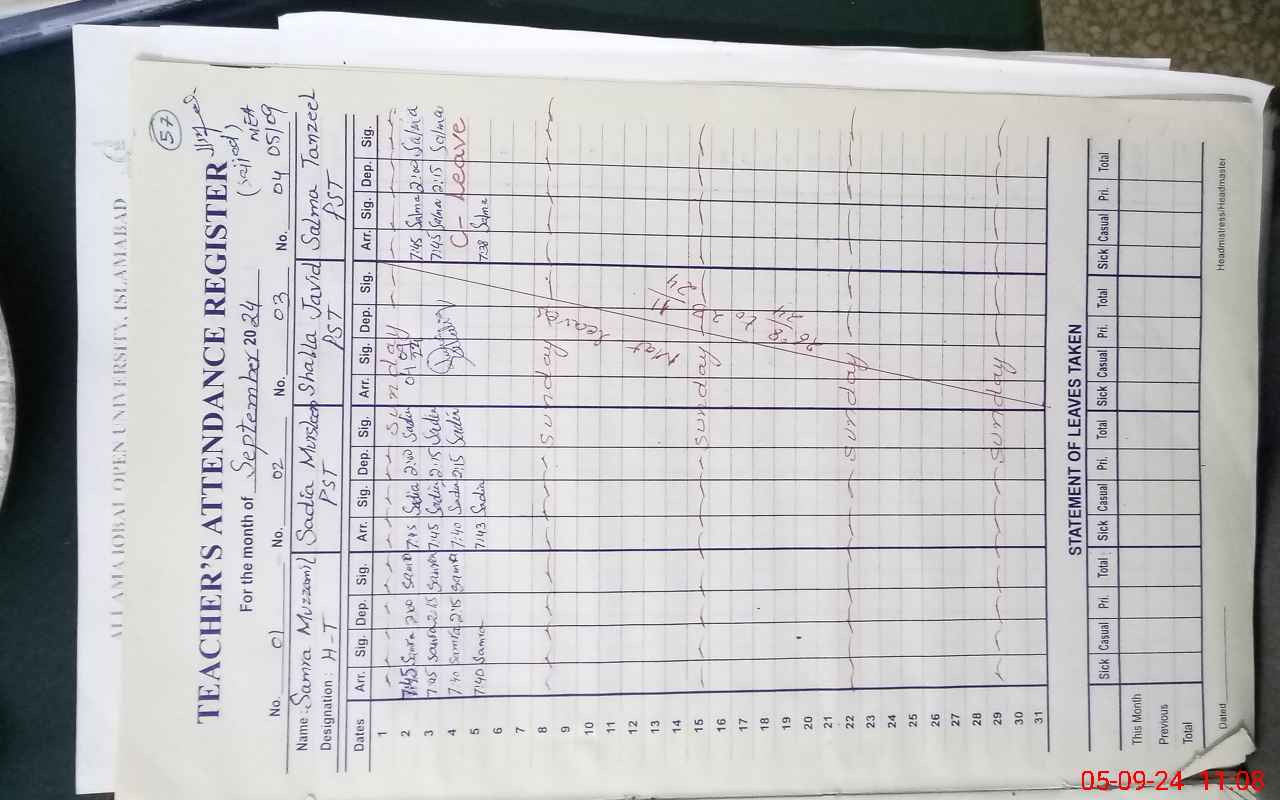 ALLAMA IQBAL OPEN UNIVERSITY, ISLAMABAD
57
TEACHER'S ATTENDANCE REGISTER
(Sajjad)
MEA
For the month of September 2024
No. 01 No. 02 No. 03 No. 04 05/09
Name: Samra Muzzamil Sadia Mursleen Shaila Javid Salma Tanzeel
Designation: H-T PST PST PST
Dates Arr. Sig. Dep. Sig. Arr. Sig. Dep. Sig. Arr. Sig. Dep. Sig. Arr. Sig. Dep. Sig.
1 Sunday
2 7:45 Samra 2:00 Samra 7:45 Sadia 2:00 Sadia 04 09 24 7:45 Salma 2:00 Salma
3 7:45 Samra 2:15 Samra 7:45 Sadia 2:15 Sadia 7:45 Salma 2:15 Salma
4 7:40 Samra 2:15 Samra 7:40 Sadia 2:15 Sadia C- Leave
5 7:40 Samra 7:43 Sadia 7:38 Salma
6
7
8 Sunday
9
10
11
12
13
14
15 Sunday
16
17
18
19
20
21
22 Sunday
23
24
25
26
27
28
29 Sunday
30
31
Mat leaves
to
STATEMENT OF LEAVES TAKEN
Sick Casual Pri. Total Sick Casual Pri. Total Sick Casual Pri. Total Sick Casual Pri. Total
This Month
Previous
Total
Dated Headmistress/Headmaster
05-09-24 11:08